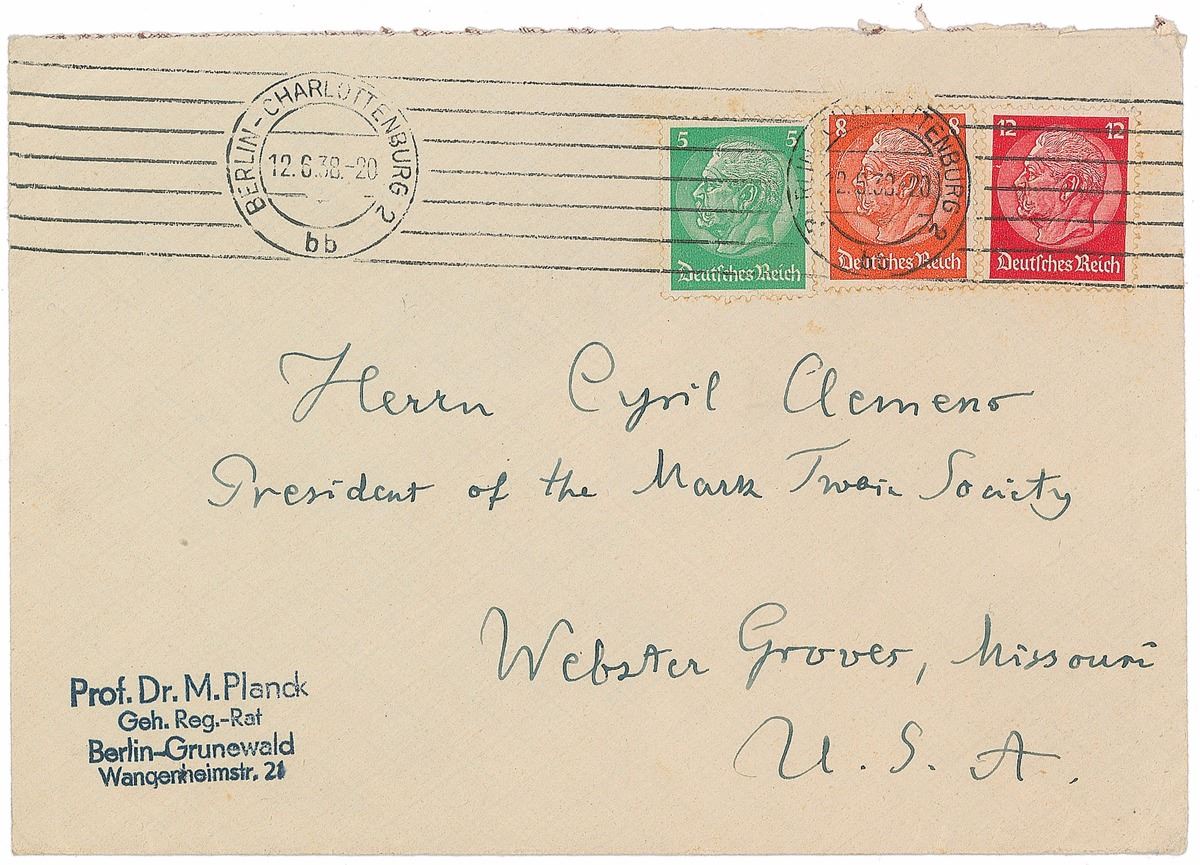 BERLIN-CHARLOTTENBURG 2
12.6.38.-20
bb
5 5
Deutsches Reich
8 8
Deutsches Reich
12 12
Deutsches Reich
BERLIN-CHARLOTTENBURG 2
12.6.38.-20
bb
Herrn Cyril Clemens
President of the Mark Twain Society
Webster Groves, Missouri
U. S. A.
Prof. Dr. M. Planck
Geh. Reg.-Rat
Berlin-Grunewald
Wangenheimstr. 21